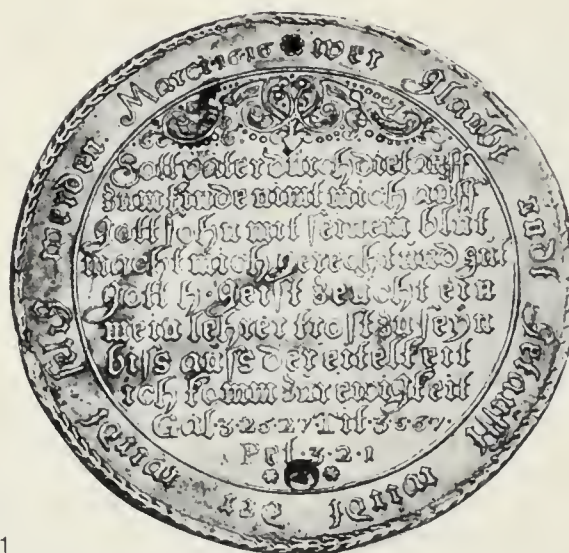 wer glaubt undt getaufft wirdt Der wirdt selig werden Marci 16 16
Gott vater durch die tauff
zum kinde nimt mich auff
Gott sohn mit seinem blut
macht mich gerecht und gut
Gott h. Geist zeucht ein
mein lehrer trost zu seyn
biss auss der eitelkeit
ich komm zur ewigkeit
Gal·3·26·27 Tit·3·5 6 7·
Pet·3·2·1
1